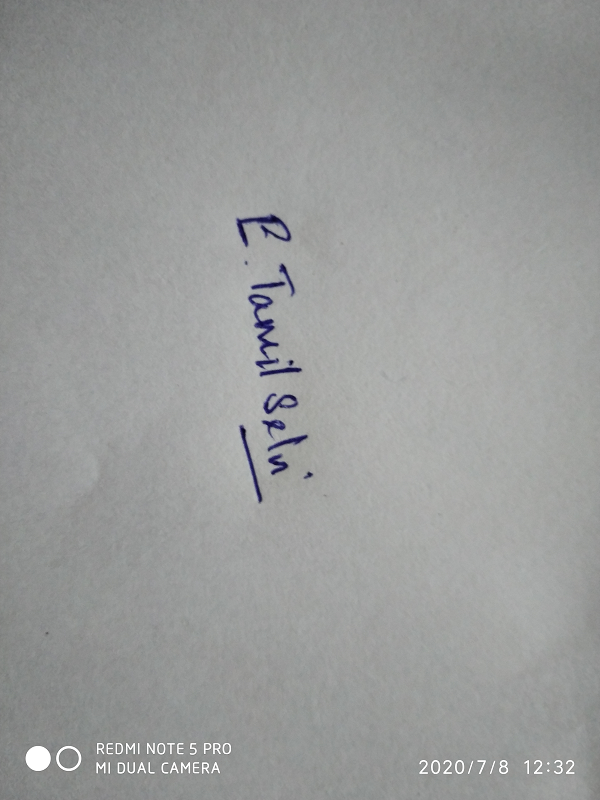 E. Tamil Selvi
REDMI NOTE 5 PRO
MI DUAL CAMERA
2020/7/8 12:32